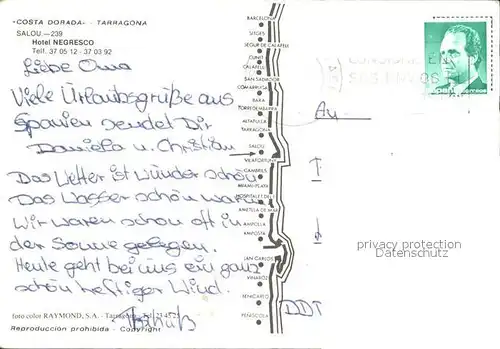 "COSTA DORADA" - TARRAGONA
SALOU.—239
Hotel NEGRESCO
Telf. 37 05 12 - 37 03 92
Liebe Oma
Viele Urlaubsgrüße aus
Spanien sendet Dir
Daniela u. Christian
Das Wetter ist wunder schön
Das Wasser schön warm
Wir waren schon oft in
der Sonne gelegen.
Heute geht bei uns ein ganz
schön heftiger Wind.
foto color RAYMOND, S.A. - Tarragona
Reproducción prohibida - Copyright
BARCELONA
SITGES
SEGUR DE CALAFELL
CUNIT
CALAFELL
SAN SALVADOR
COMARRUGA
BARA
TORREDEMBARRA
ALTAFULLA
TARRAGONA
SALOU
VILAFORTUNY
CAMBRILS
MIAMI-PLAYA
HOSPITALET DEL
AMETLLA DE MAR
AMPOLLA
AMPOSTA
SAN CARLOS
VINAROZ
BENICARLO
PEÑISCOLA
An
correos
privacy protection
Datenschutz
DDT